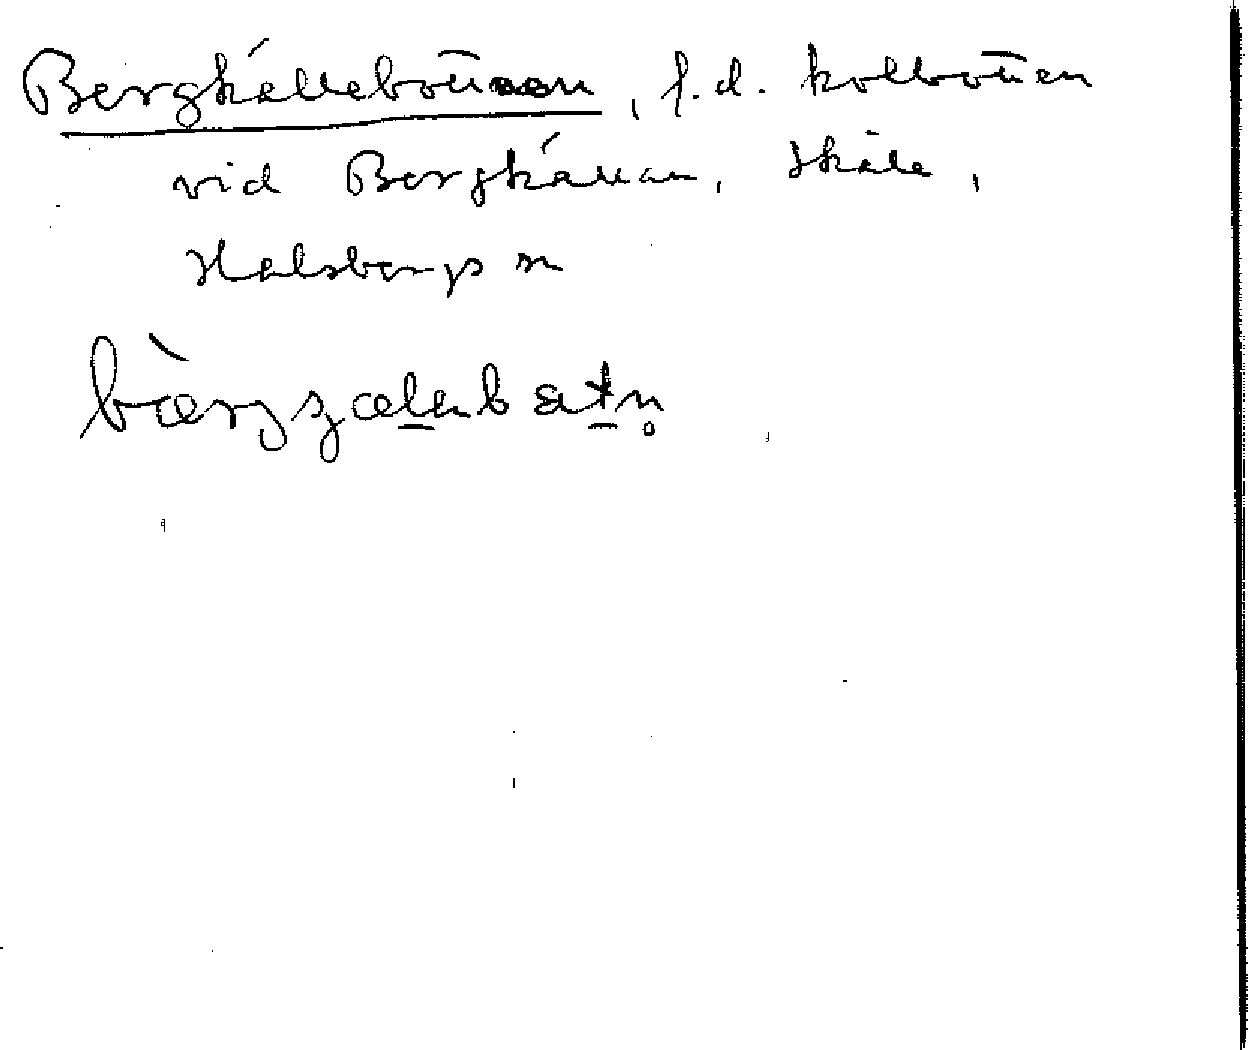 Bergkällebottnen, f.d. kolbotten
vid Bergkällan, Skåle,
Halsbergs sn